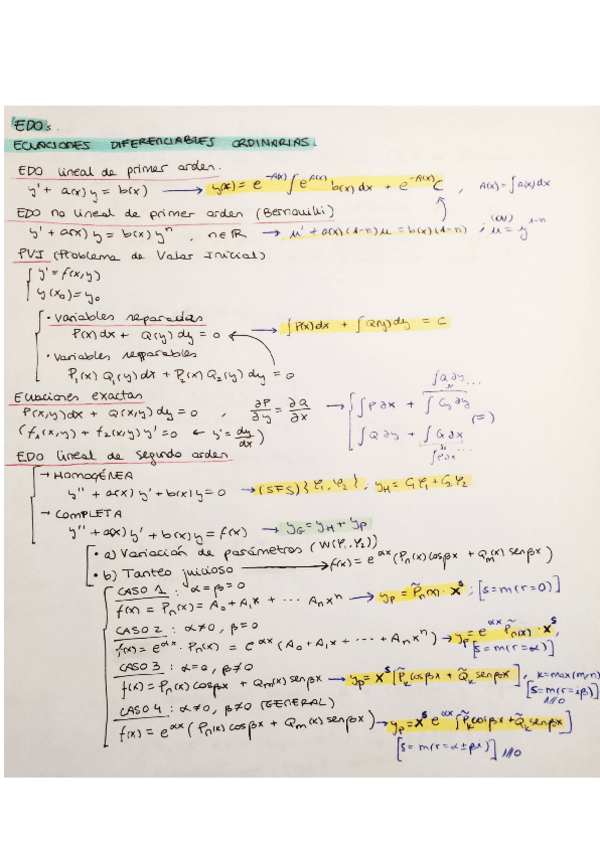 EDOs.
ECUACIONES DIFERENCIABLES ORDINARIAS.
EDO lineal de primer orden.
y' + a(x) y = b(x) → y(x) = e^{-A(x)} ∫ e^{A(x)} b(x) dx + e^{-A(x)} C , A(x) = ∫ a(x) dx
EDO no lineal de primer orden (Bernouilli)
y' + a(x) y = b(x) y^n , n∈ℝ → μ' + a(x)(1-n) μ = b(x)(1-n) ; (CV) μ = y^{1-n}
PVI (Problema de Valor Inicial)
{ y' = f(x,y)
y(x₀) = y₀
• variables separadas
P(x) dx + Q(y) dy = 0 → ∫ P(x) dx + ∫ Q(y) dy = C
• variables separables
P₁(x) Q₁(y) dx + P₂(x) Q₂(y) dy = 0
Ecuaciones exactas
P(x,y) dx + Q(x,y) dy = 0 , ∂P/∂y = ∂Q/∂x → { ∫ P ∂x +
(f₁(x,y) + f₂(x,y) y' = 0 ← y' = dy/dx) ∫ Q ∂y + (=)
EDO lineal de segundo orden
→ HOMOGÉNEA
y'' + a(x) y' + b(x) y = 0 → (SFS) { φ₁, φ₂ } ; y_H = C₁φ₁ + C₂φ₂
→ COMPLETA
y'' + a(x) y' + b(x) y = f(x) → y_G = y_H + y_P
• a) Variación de parámetros (W(φ₁, φ₂))
• b) Tanteo juicioso → f(x) = e^{αx} (P_n(x) cosβx + Q_m(x) senβx)
CASO 1 : α = β = 0
f(x) = P_n(x) = A₀ + A₁x + ··· A_n x^n → y_p = P̃_n(x) · x^s ; [s = m(r=0)]
CASO 2 : α≠0, β=0
f(x) = e^{αx} · P_n(x) = e^{αx} (A₀ + A₁x + ··· + A_n x^n) → y_p = e^{αx} P̃_n(x) · x^s ,
[s = m(r=α)]
CASO 3 : α=0, β≠0
f(x) = P_n(x) cosβx + Q_m(x) senβx → y_p = x^s [P̃_k cosβx + Q̃_k senβx] , k = max(m,n)
[s = m(r=iβ)]
CASO 4 : α≠0, β≠0 (GENERAL)
f(x) = e^{αx} (P_n(x) cosβx + Q_m(x) senβx) → y_p = x^s e^{αx} [P̃_k cosβx + Q̃_k senβx]
[s = m(r=α±βi)]